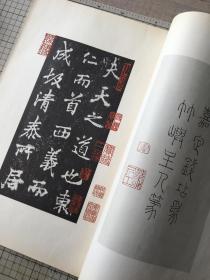 嘉定錢坫為
竹嶼主人篆
夫天之道也東
仁而首西義而
成故清泰所居